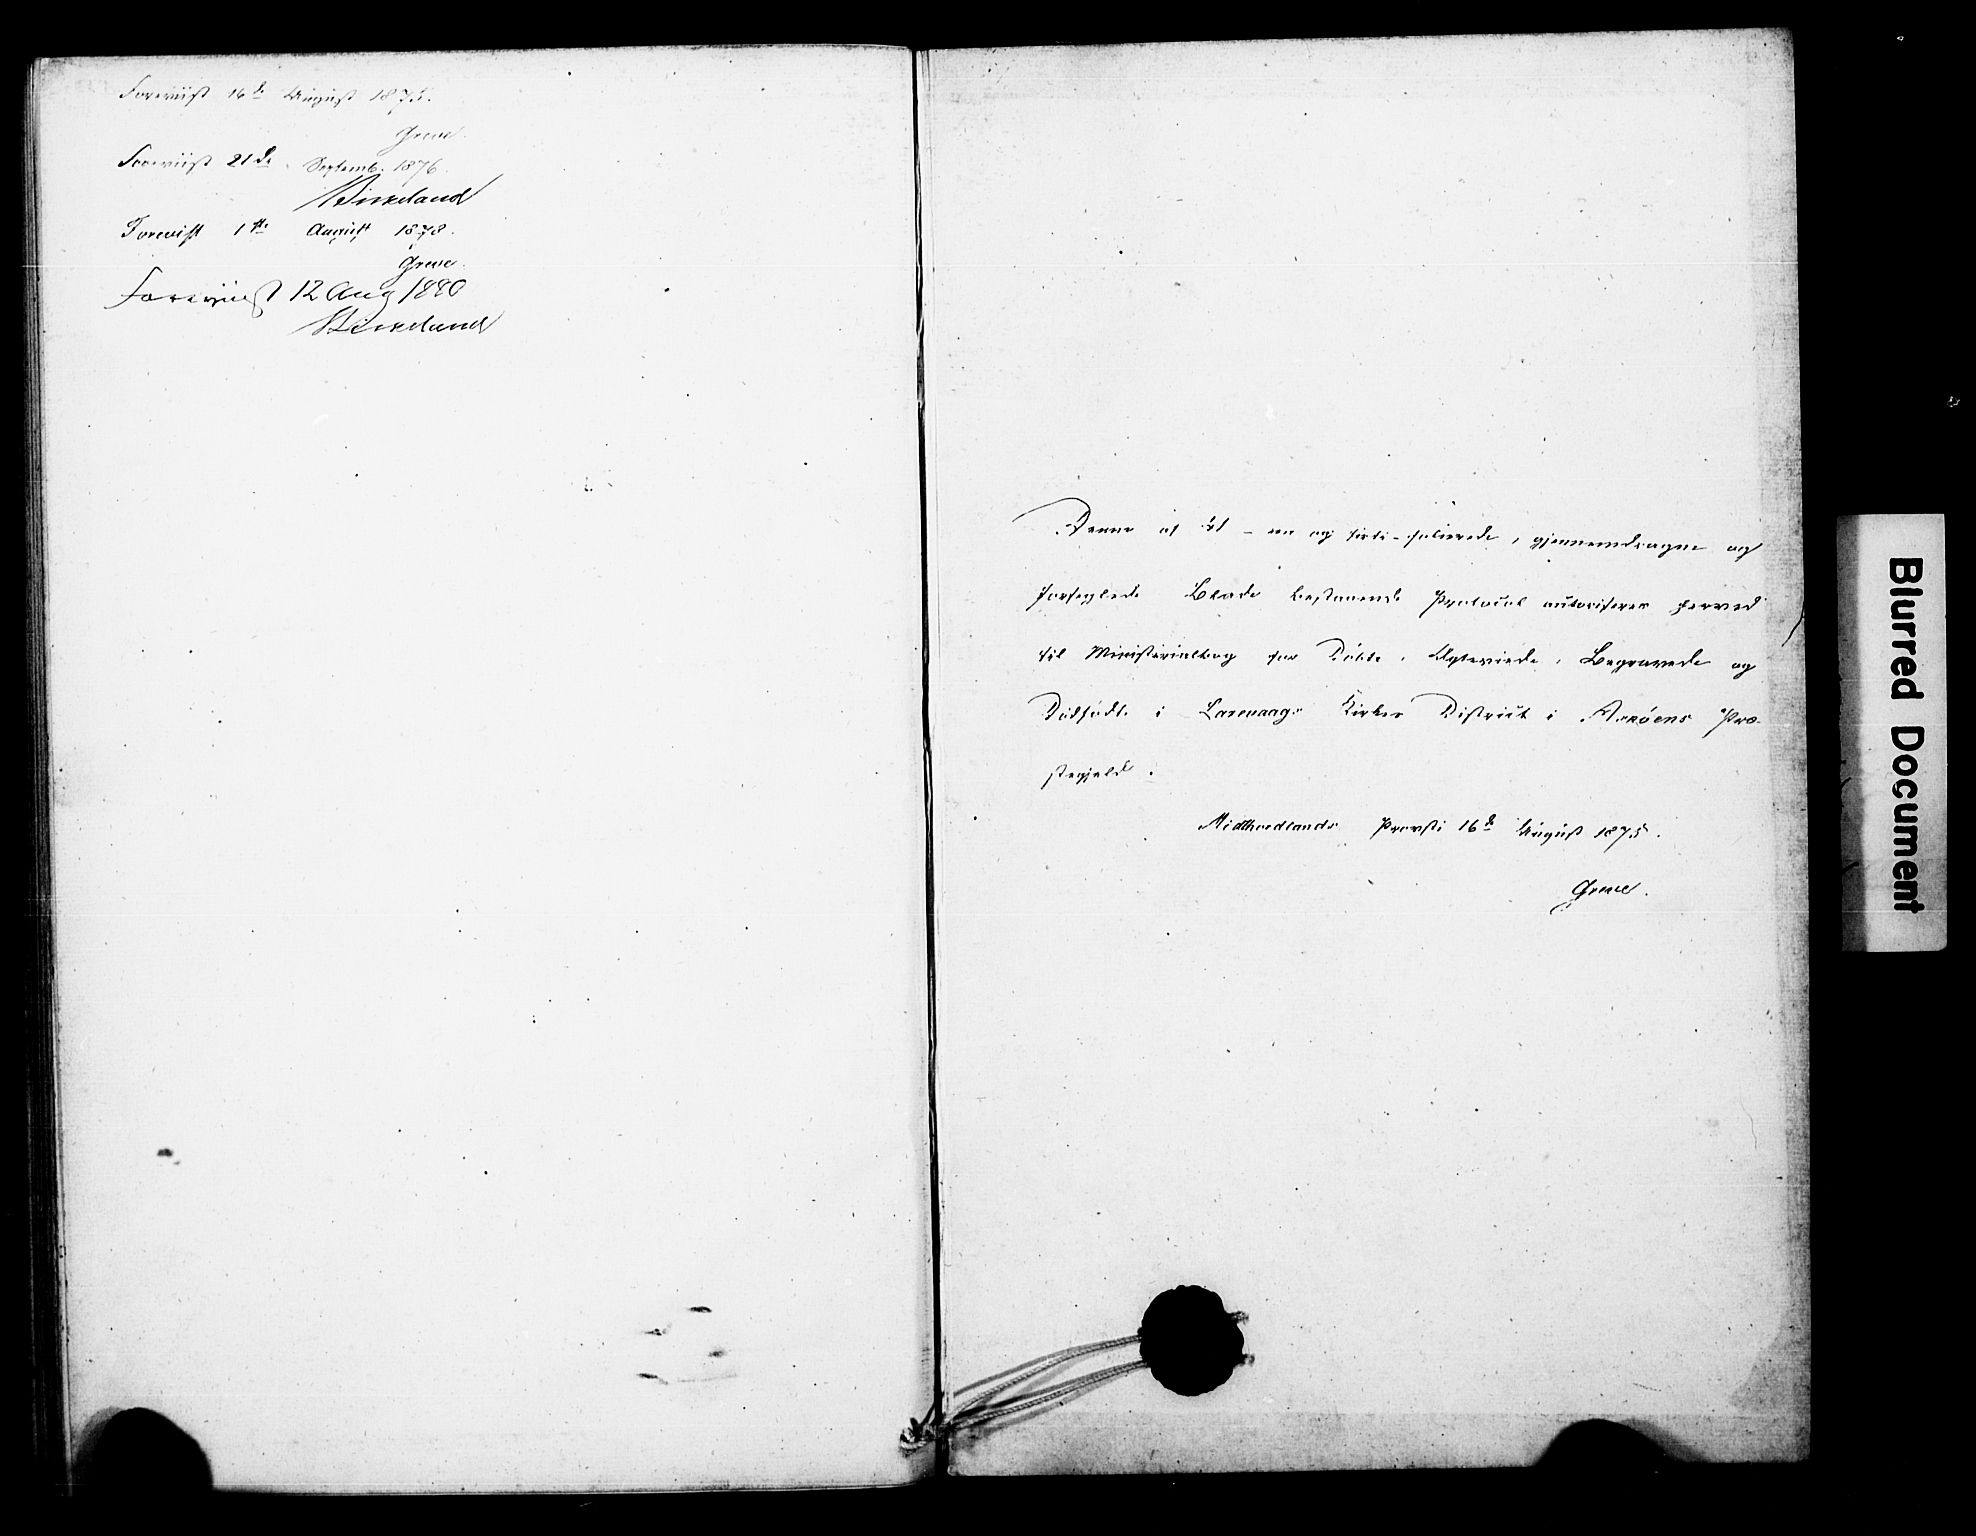 Foreviist 16de August 1875.
Greve.
Foreviist 21de Septemb. 1876.
Birkeland
Forevist 1ste August 1878.
Greve.
Foreviist 12 Aug 1880
Birkeland
Denne af 41 - en og firti - folierede, gjennemdragne og
forseglede Blade bestaaende Protocol autoriseres herved
til Ministerialbog for Döbte, Egteviede, Begravede og
Dödfödte i Larevaags Kirkes District i Askøens Præ-
stegjeld.
Midthordlands Provsti 16de August 1875.
Greve.
Blurred Document